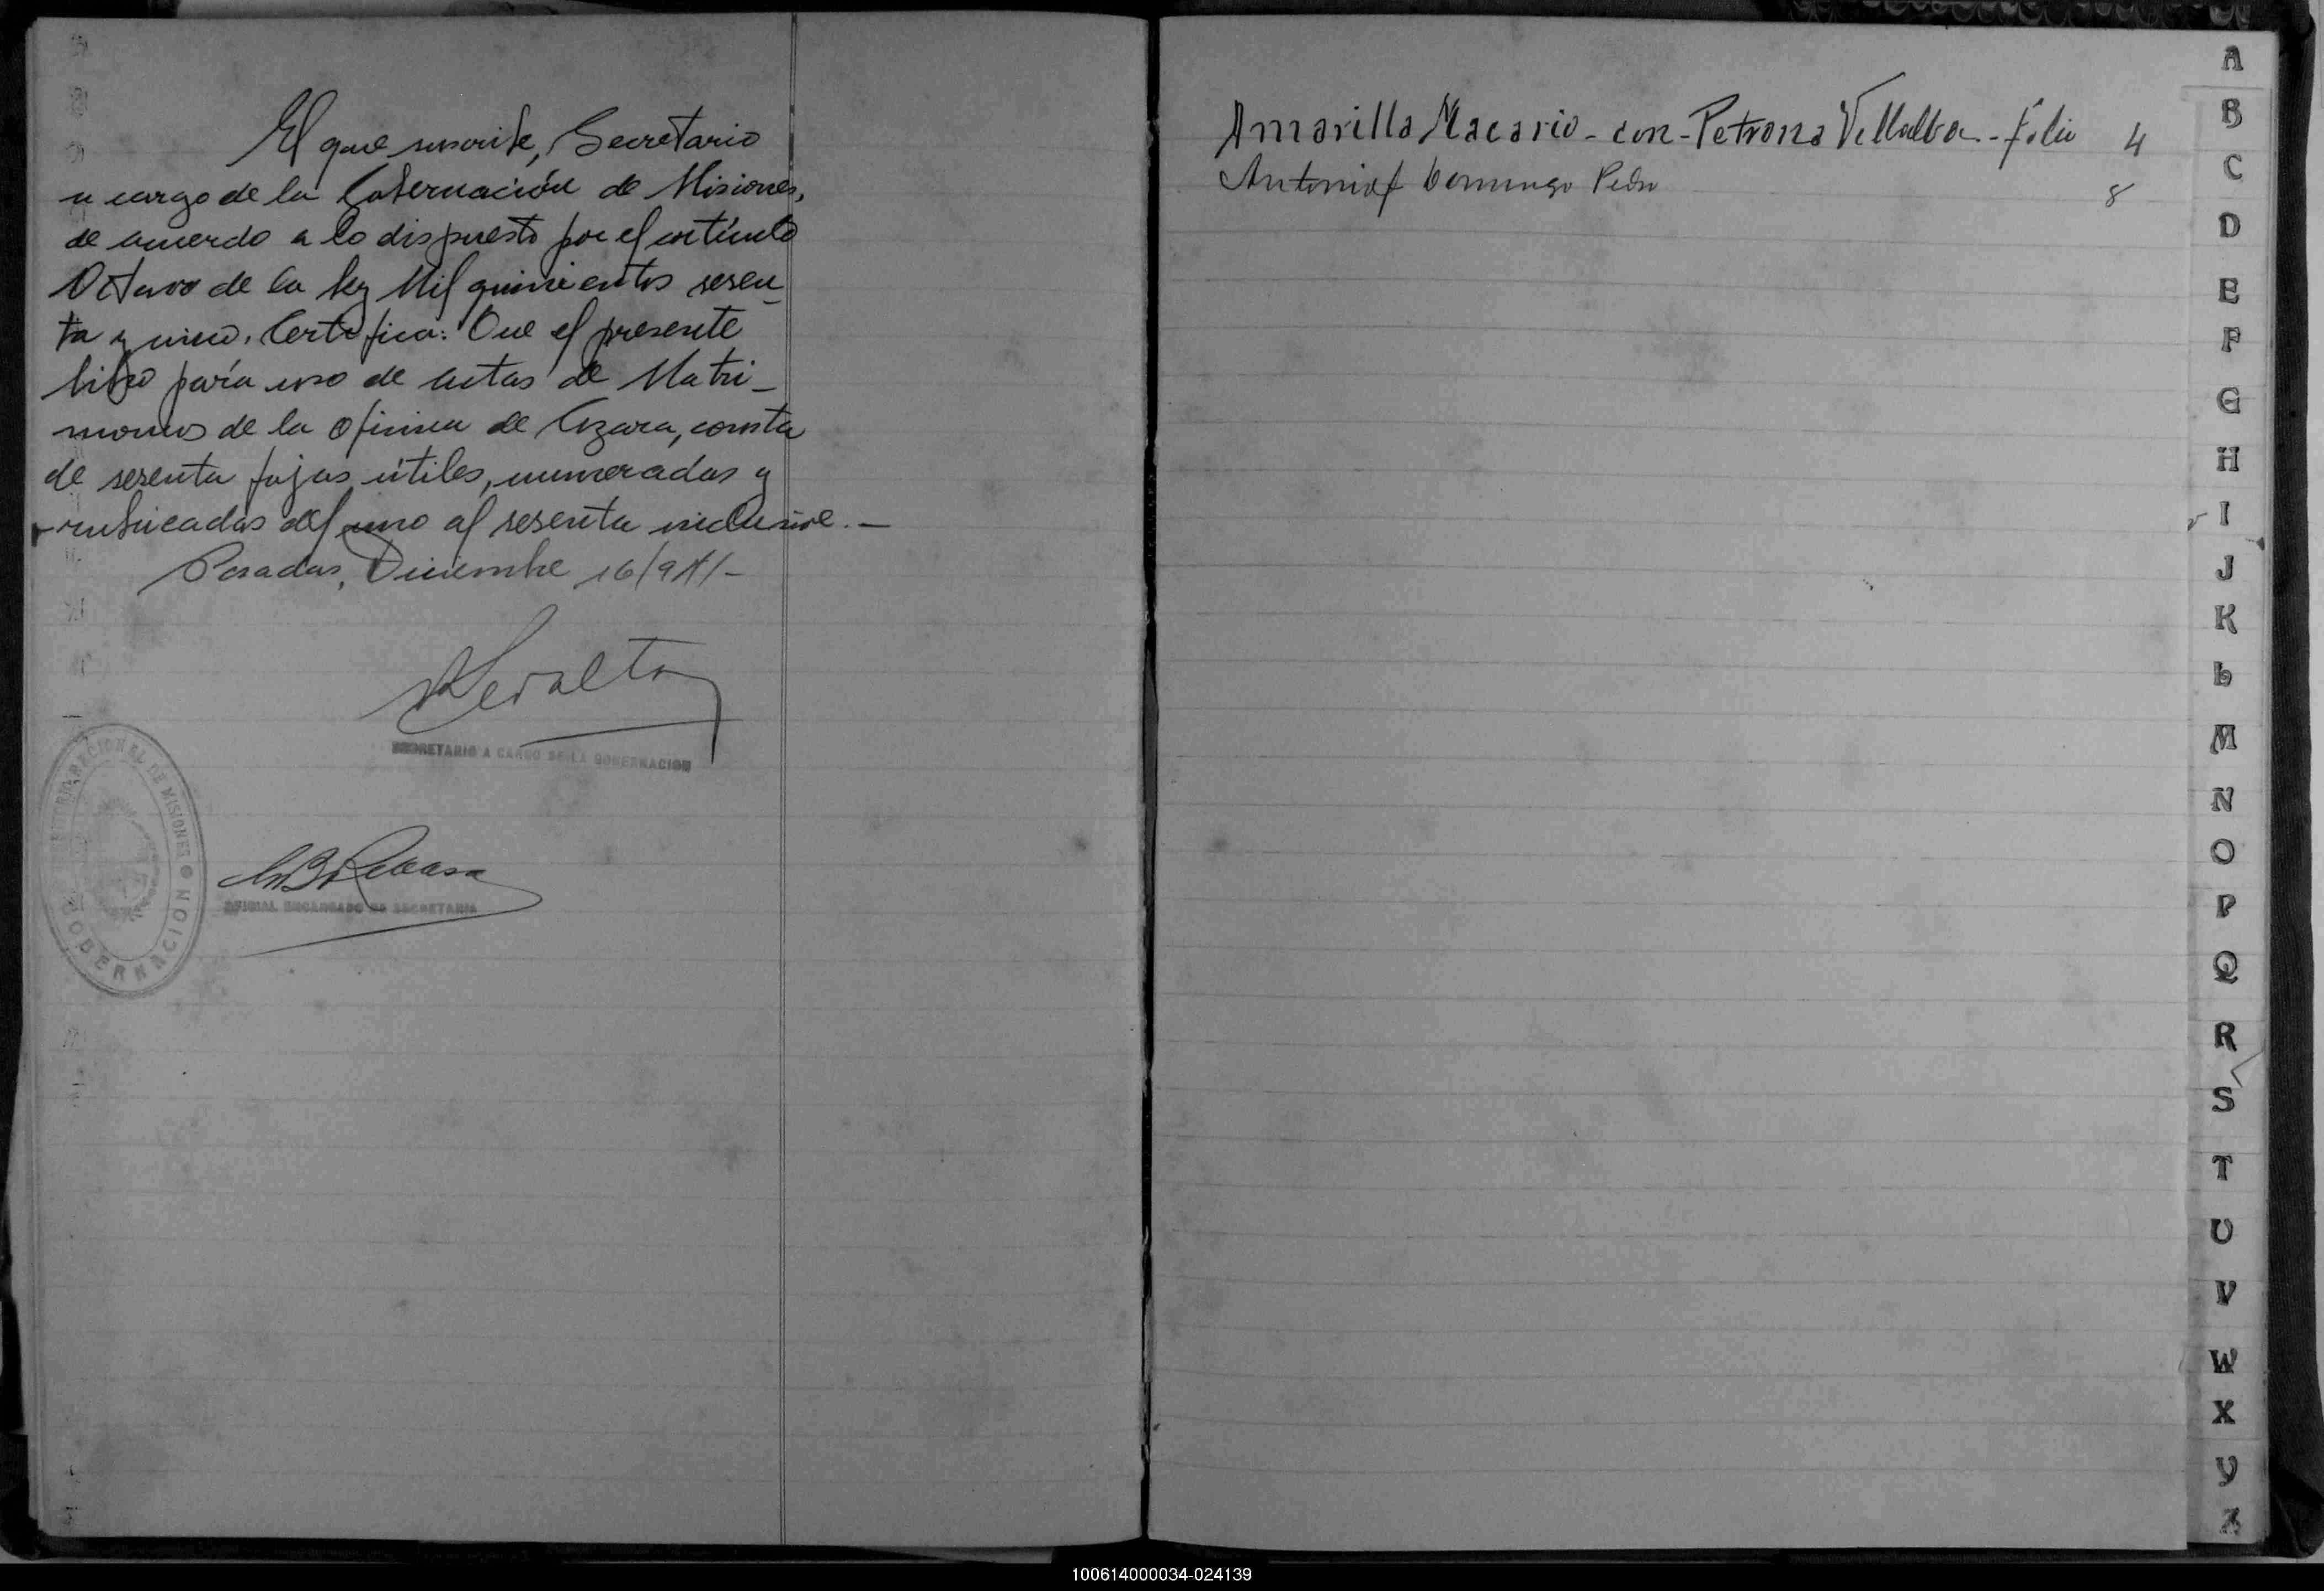 El que suscribe, Secretario
a cargo de la Gobernación de Misiones,
de acuerdo a lo dispuesto por el artículo
Octavo de la ley Mil quinientos sesen
ta y cinco. Certifica: Que el presente
libro para uso de actas de Matri-
monios de la oficina de Azara, consta
de sesenta fojas útiles, numeradas y
rubricadas del uno al sesenta inclusive.-
Posadas, Diciembre 16/941-
Peralta
SECRETARIO A CARGO DE LA GOBERNACION
TERRITORIO NACIONAL DE MISIONES
GOBERNACION
OFICIAL ENCARGADO DE SECRETARIA
Amarilla Macario - con - Petrona Villalba - folio 4
Domingo Pedro 8
A
B
C
D
E
F
G
H
I
J
K
L
M
N
O
P
Q
R
S
T
U
V
W
X
Y
Z
100614000034-024139